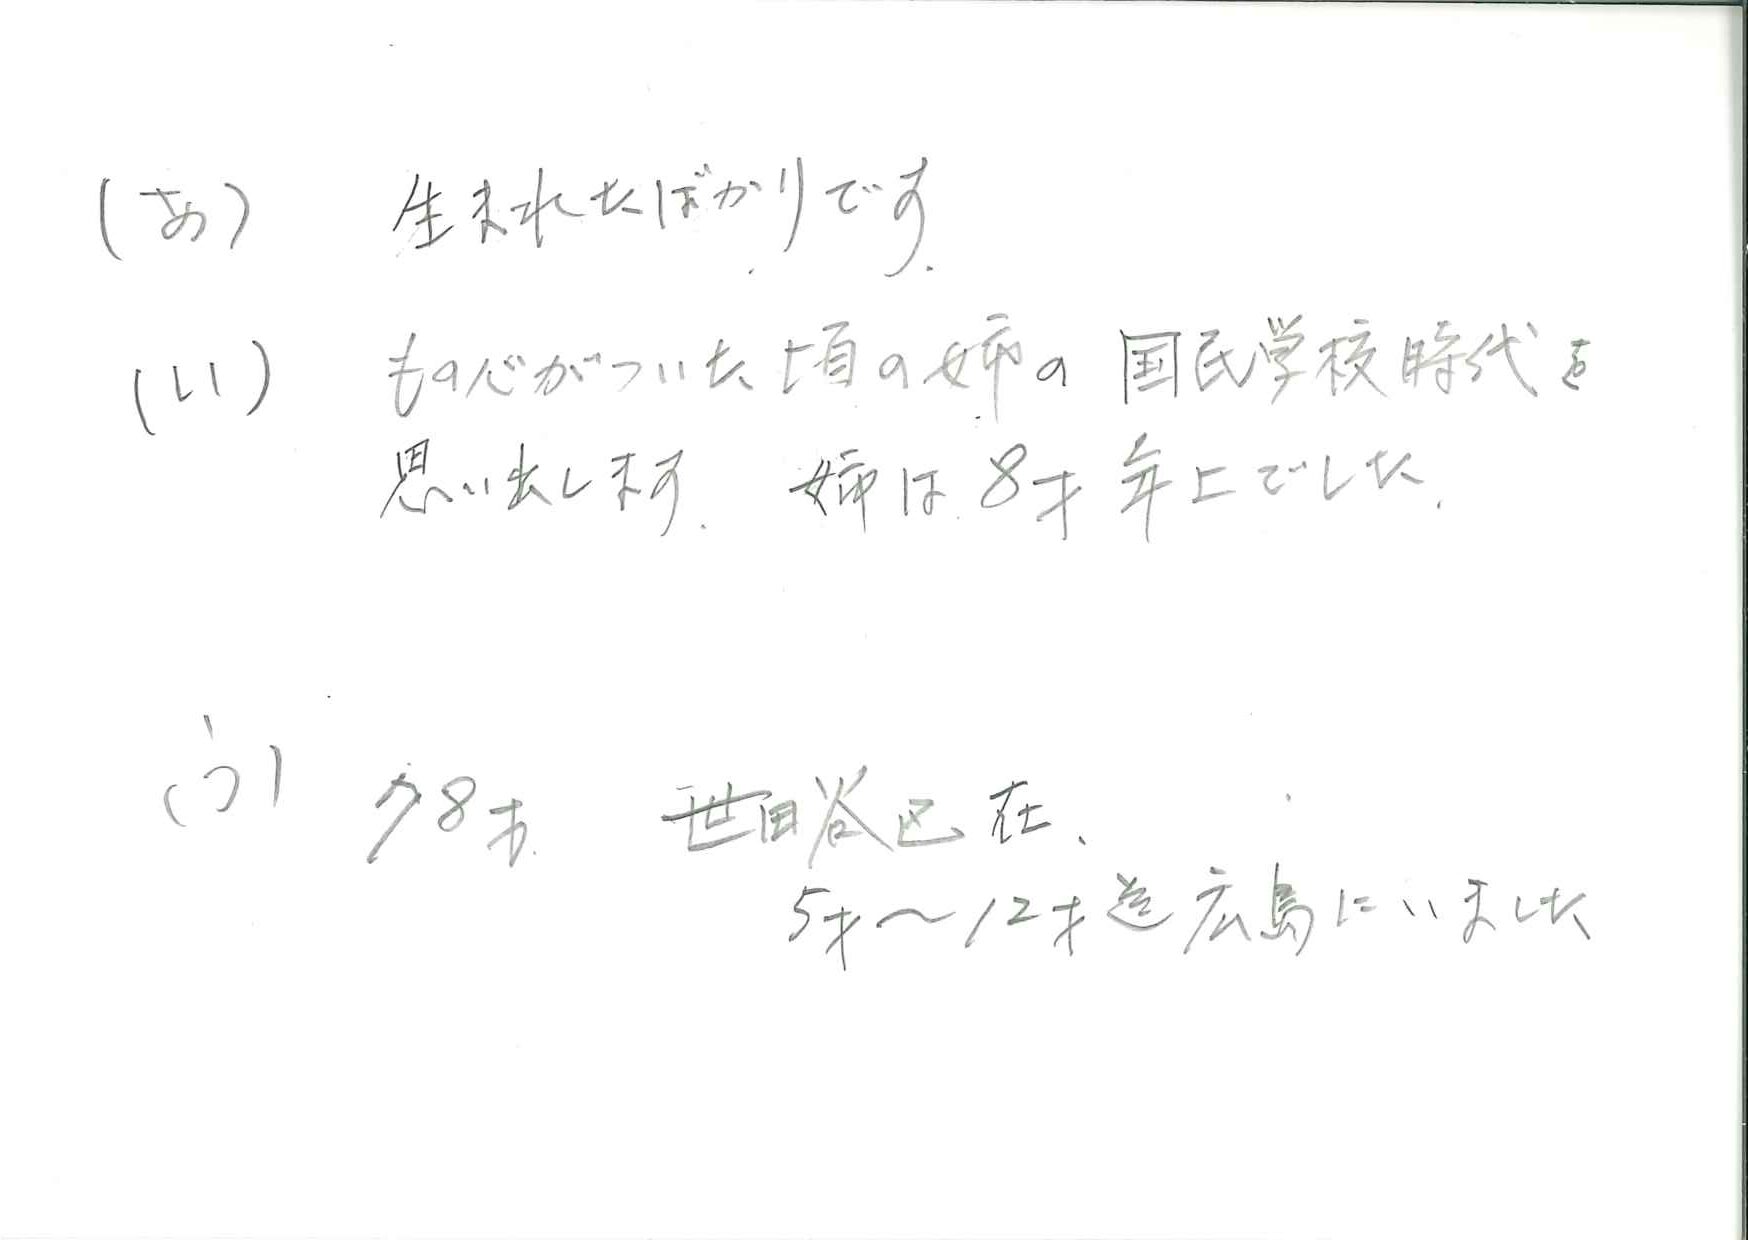 (あ) 生まれたばかりです.
(い) もの心がついた頃の姉の国民学校時代を
思い出します. 姉は8才年上でした.
(う) 78才. 世田谷区在、
5才〜12才迄広島にいました